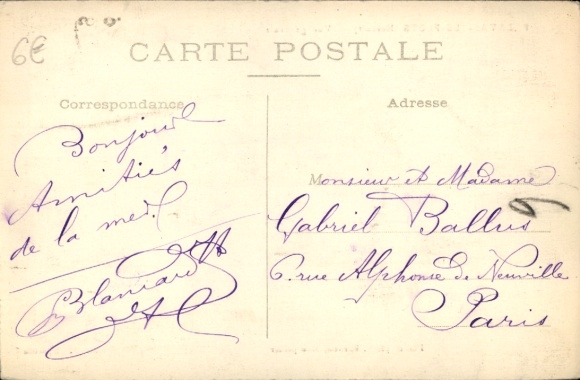 6€
CARTE POSTALE
Correspondance
Adresse
Bonjour
Amitiés
de la mer.
Monsieur et Madame
Gabriel Ballus
6. rue Alphonse de Neuville
Paris